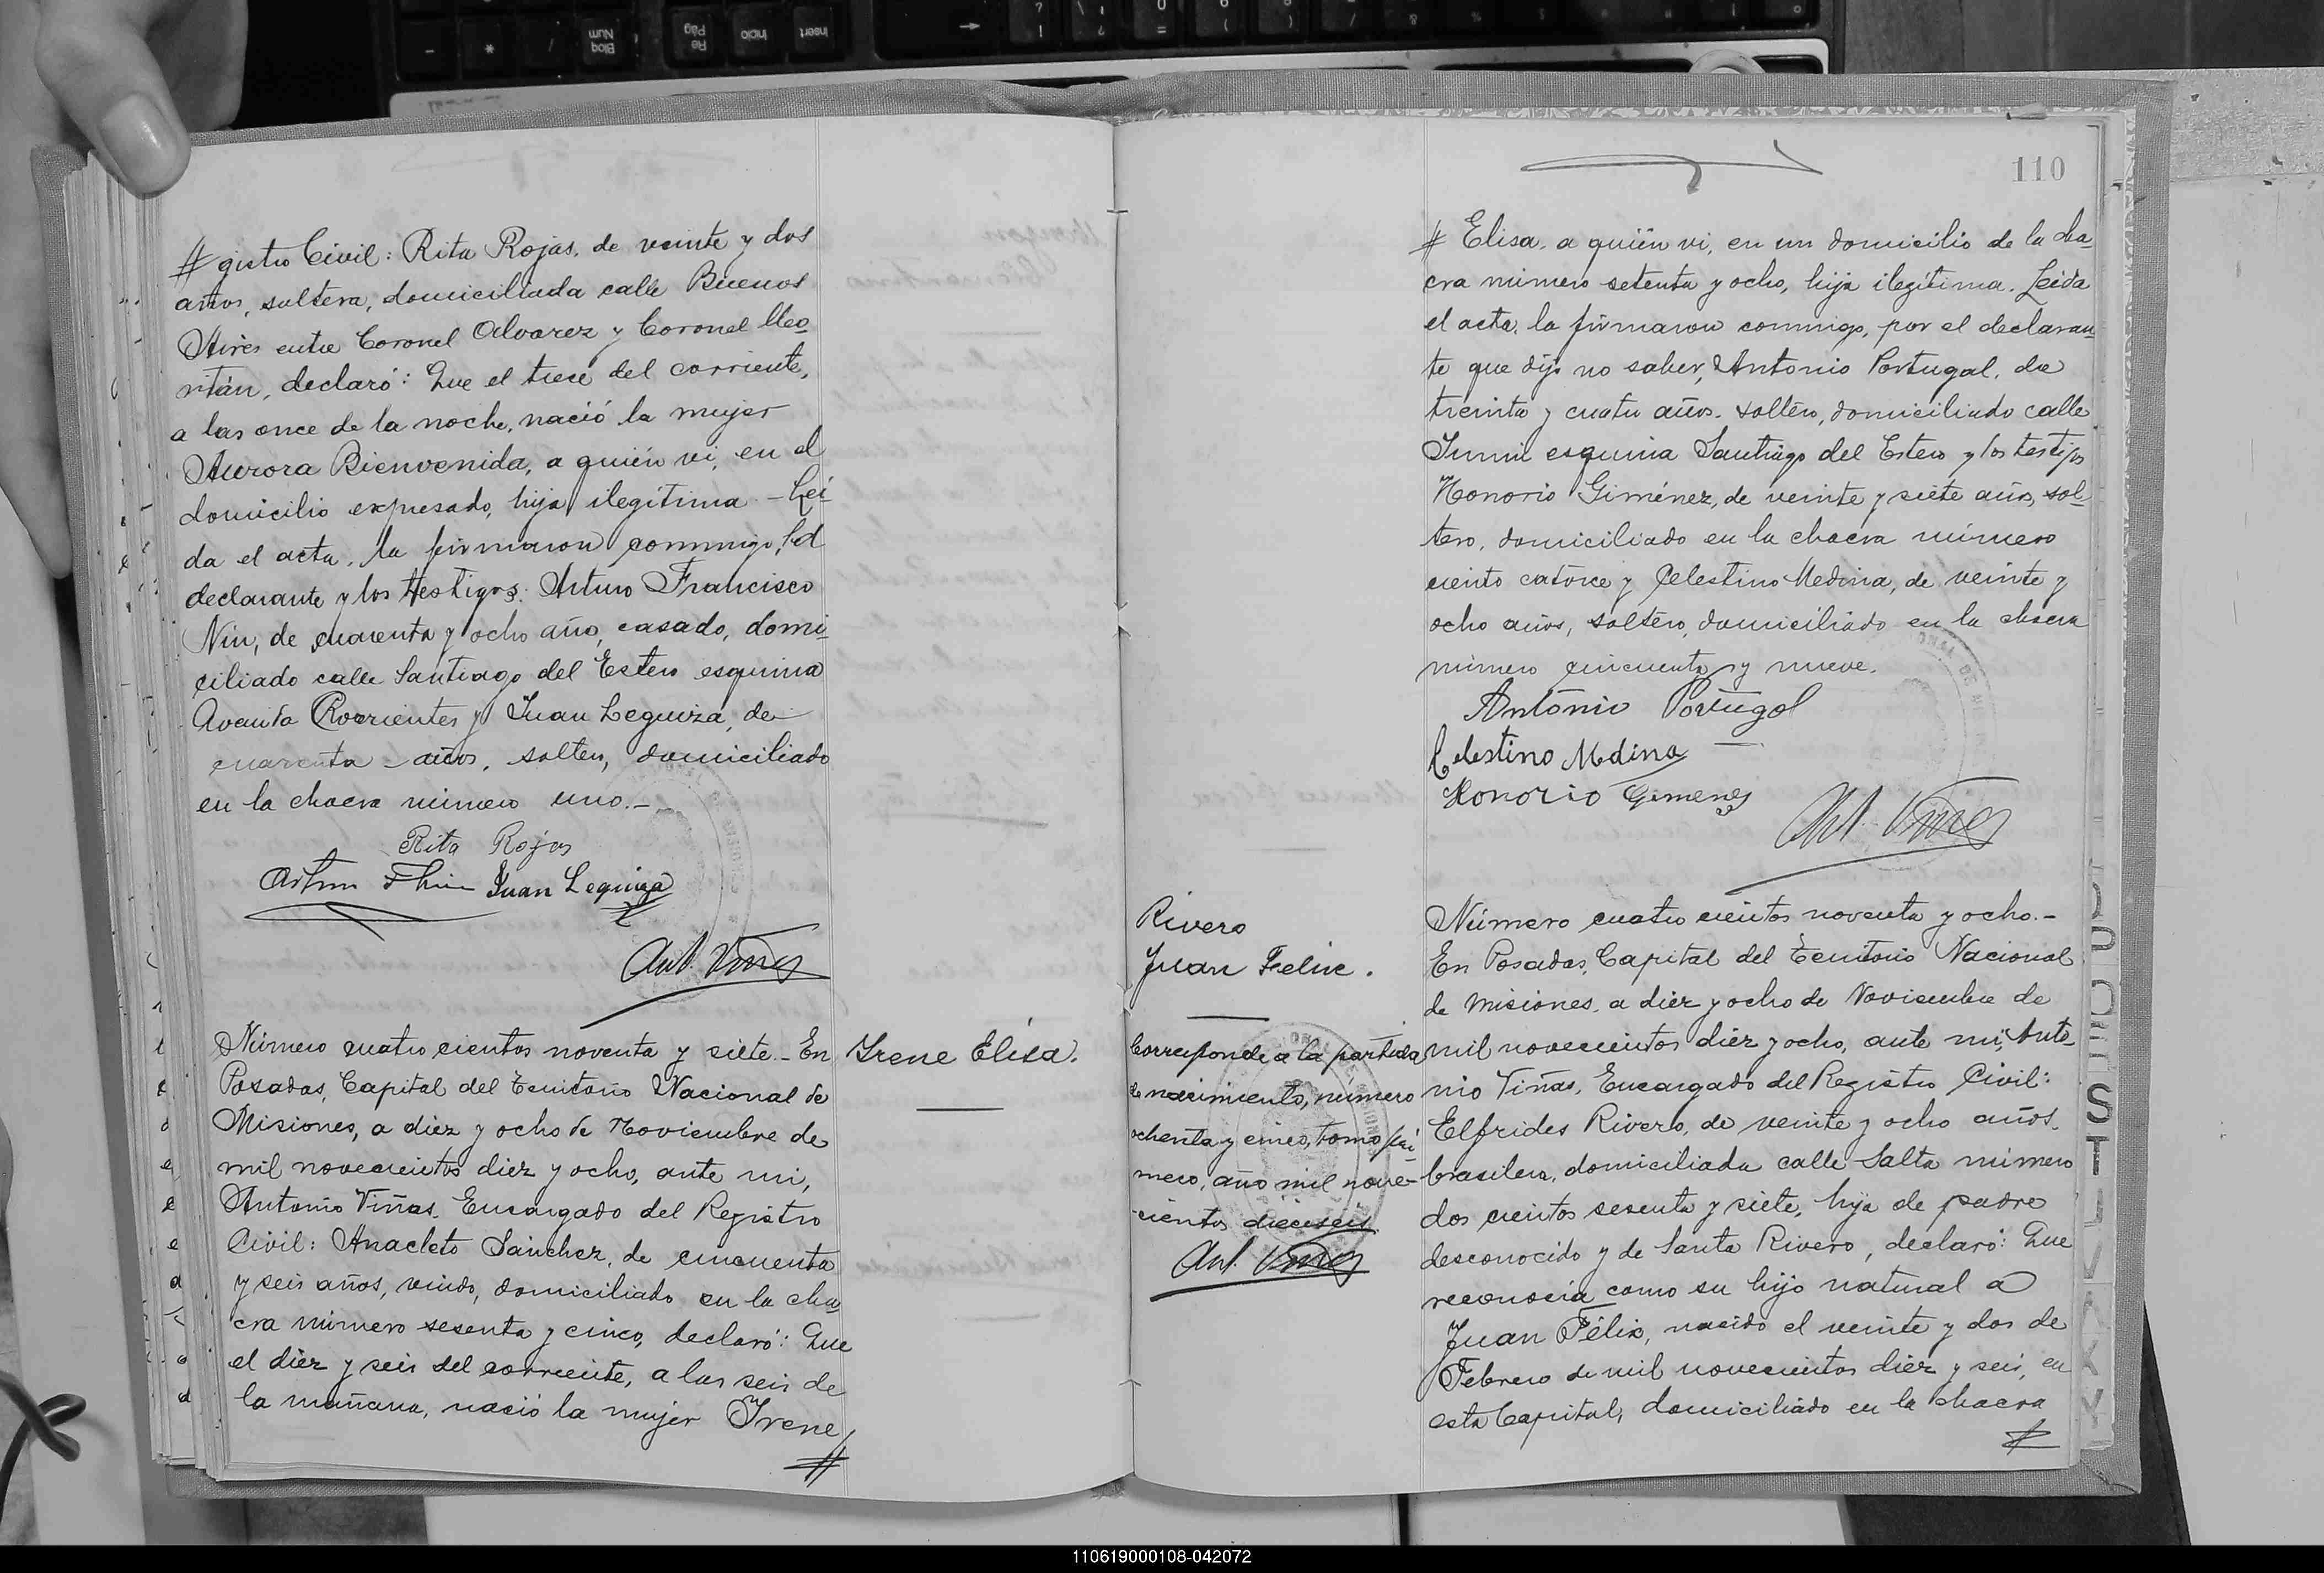 # gistro Civil: Rita Rojas, de veinte y dos
años, soltera, domiciliada calle Buenos
Aires entre Coronel Alvarez y Coronel
declaró: Que el trece del corriente,
a las once de la noche, nació la mujer
Aurora Bienvenida, a quién vi, en el
domicilio expresado, hija ilegítima - Leí
da el acta, la firmaron conmigo, la
declarante y los testigos: Arturo Francisco
Nin, de cuarenta y ocho año, casado, domi
ciliado calle Santiago del Estero esquina
Avenida Corrientes y Juan Leguiza, de
cuarenta - años, soltero, domiciliado
en la chacra número uno.-
Rita Rojas
Juan Leguiza
Ant. Viñas
Número cuatro cientos noventa y siete.- En
Posadas, Capital del Territorio Nacional de
Misiones, a diez y ocho de Noviembre de
mil novecientos diez y ocho, ante mi,
Antonio Viñas, Encargado del Registro
Civil: Anacleto Sánchez, de cincuenta
y seis años, viudo, domiciliado en la cha
cra número sesenta y cinco, declaró: Que
el diez y seis del corriente, a las seis de
la mañana, nació la mujer Irene
#
Irene Elisa.
110
# Elisa, a quién vi, en un domicilio de la cha
cra número setenta y ocho, hija ilegítima. Leida
el acta, la firmaron conmigo, por el declaran
te que dijo no saber, Antonio Portugal, de
treinta y cuatro años, soltero, domiciliado calle
Junin esquina Santiago del Estero y los testigos
Honorio Giménez, de veinte y siete años, sol
tero, domiciliado en la chacra número
ciento catorce y Celestino Medina, de veinte y
ocho años, soltero, domiciliado en la chacra
número cincuenta y nueve.
Antonio Portugal
Celestino Medina
Honorio Gimenez
Ant. Viñas
Rivero
Juan Felix.
Corresponde a la partida
de nacimiento, número
ochenta y cinco, tomo pri
mero, año mil nove-
cientos dieciseis
Ant. Viñas
Número cuatro cientos noventa y ocho.-
En Posadas, Capital del Territorio Nacional
de Misiones, a diez y ocho de Noviembre de
mil novecientos diez y ocho, ante mi, Anto
nio Viñas, Encargado del Registro Civil:
Elfrides Rivero, de veinte y ocho años,
brasilera, domiciliada calle Salta número
dos cientos sesenta y siete, hija de padre
desconocido y de Santa Rivero, declaró: Que
reconocía como su hijo natural a
Juan Félix, nacido el veinte y dos de
Febrero de mil novecientos diez y seis, en
esta Capital, domiciliado en la chacra
#
110619000108-042072